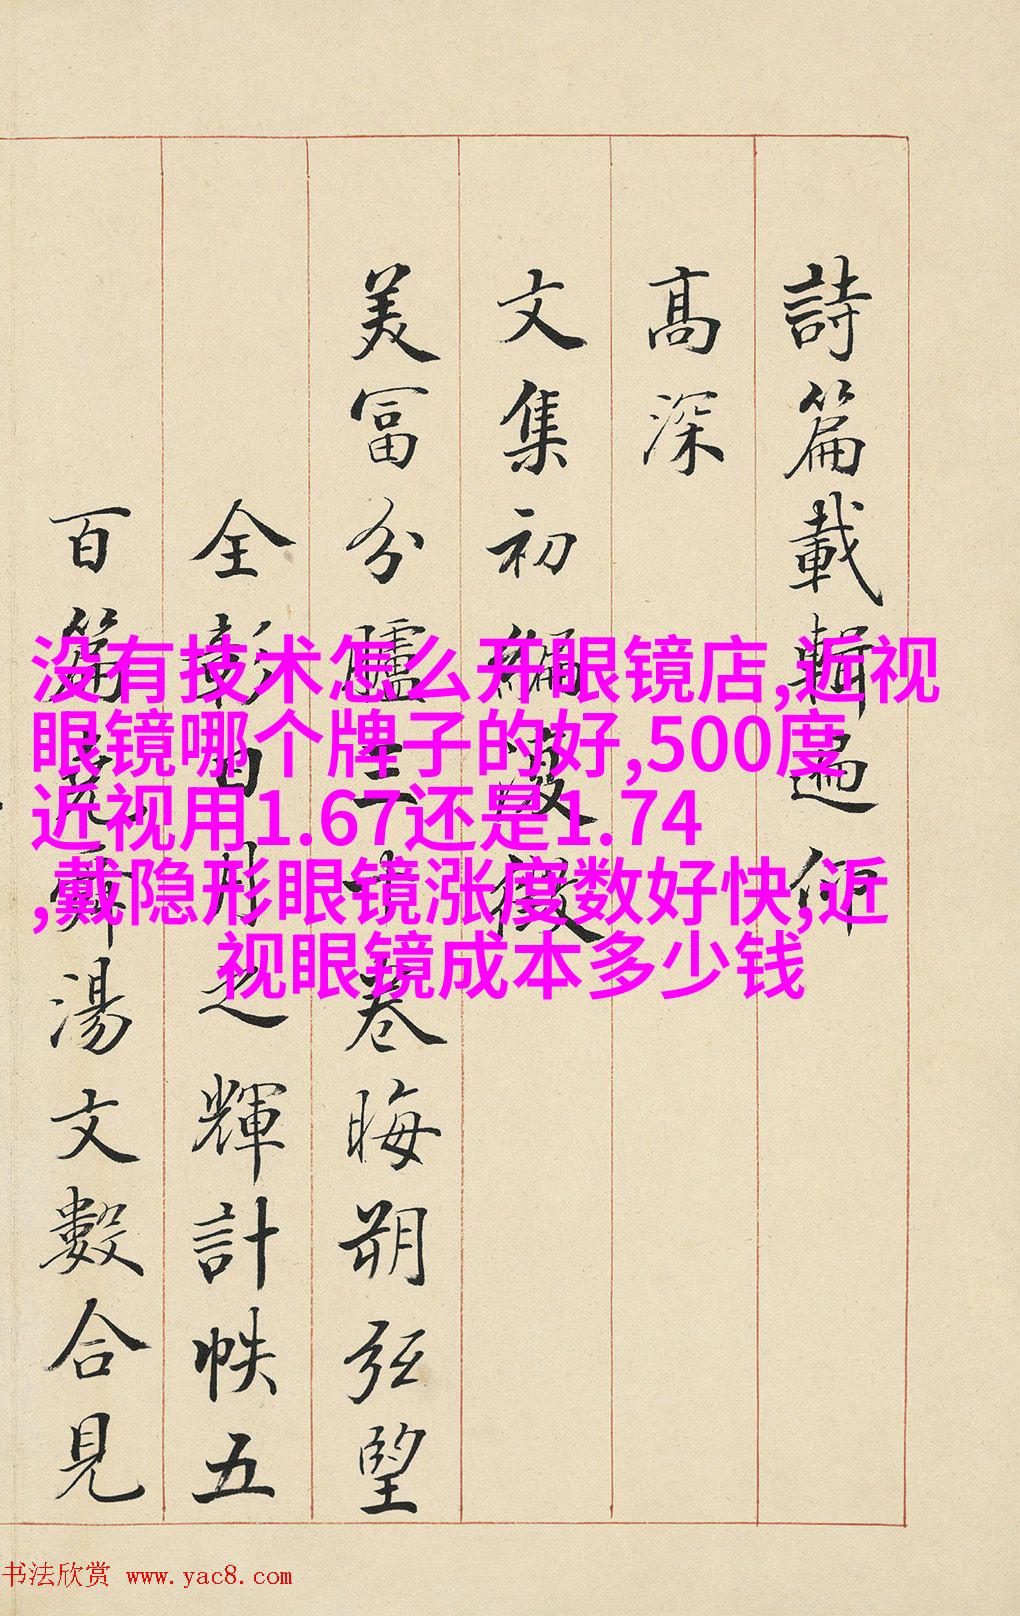 詩篇載輯遍何
髙深
文集初編徵
美富分臚三十卷晦朔弦望
全彰日月之輝計帙五
百篇堯舜湯文數合見
没有技术怎么开眼镜店,近视
眼镜哪个牌子的好,500度
近视用1.67还是1.74
,戴隐形眼镜涨度数好快,近
视眼镜成本多少钱
书法欣赏 www.yac8.com